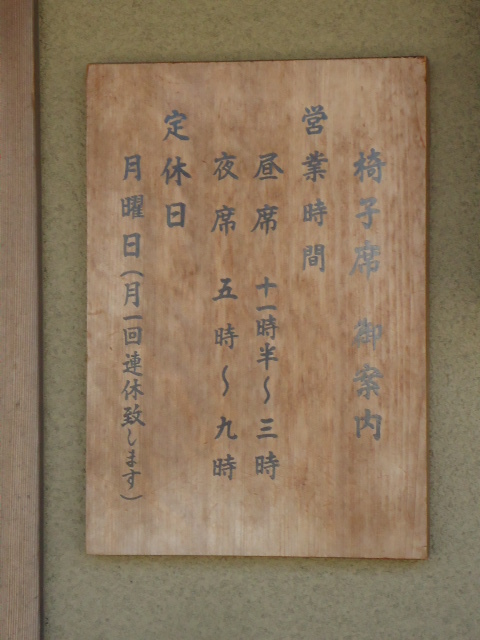 椅子席 御案内
営業時間
昼席 十一時半~三時
夜席 五時~九時
定休日
月曜日(月一回連休致します)